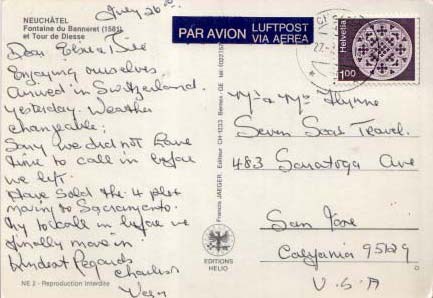 NEUCHÂTEL
Fontaine du Banneret (1581)
et Tour de Diesse
July 26th
Dear Elsie & Bill
Enjoying ourselves
arrived in Switzerland
yesterday. Weather
changeable.
Sorry we did not have
time to call in before
we left.
Have sold the 4 plex
moving to Sacramento.
Try to call in before we
finally move in
Kindest Regards
Charlie &
Vera
NE 2 - Reproduction interdite
PAR AVION LUFTPOST
VIA AEREA
Helvetia
1.00
Francis JAEGER, Editeur CH-1233 Bernex-GE
EDITIONS
HELIO
Mr & Mrs Flynne
Seven Seas Travel.
483 Saratoga Ave
San Jose
California 95129
U.S.A